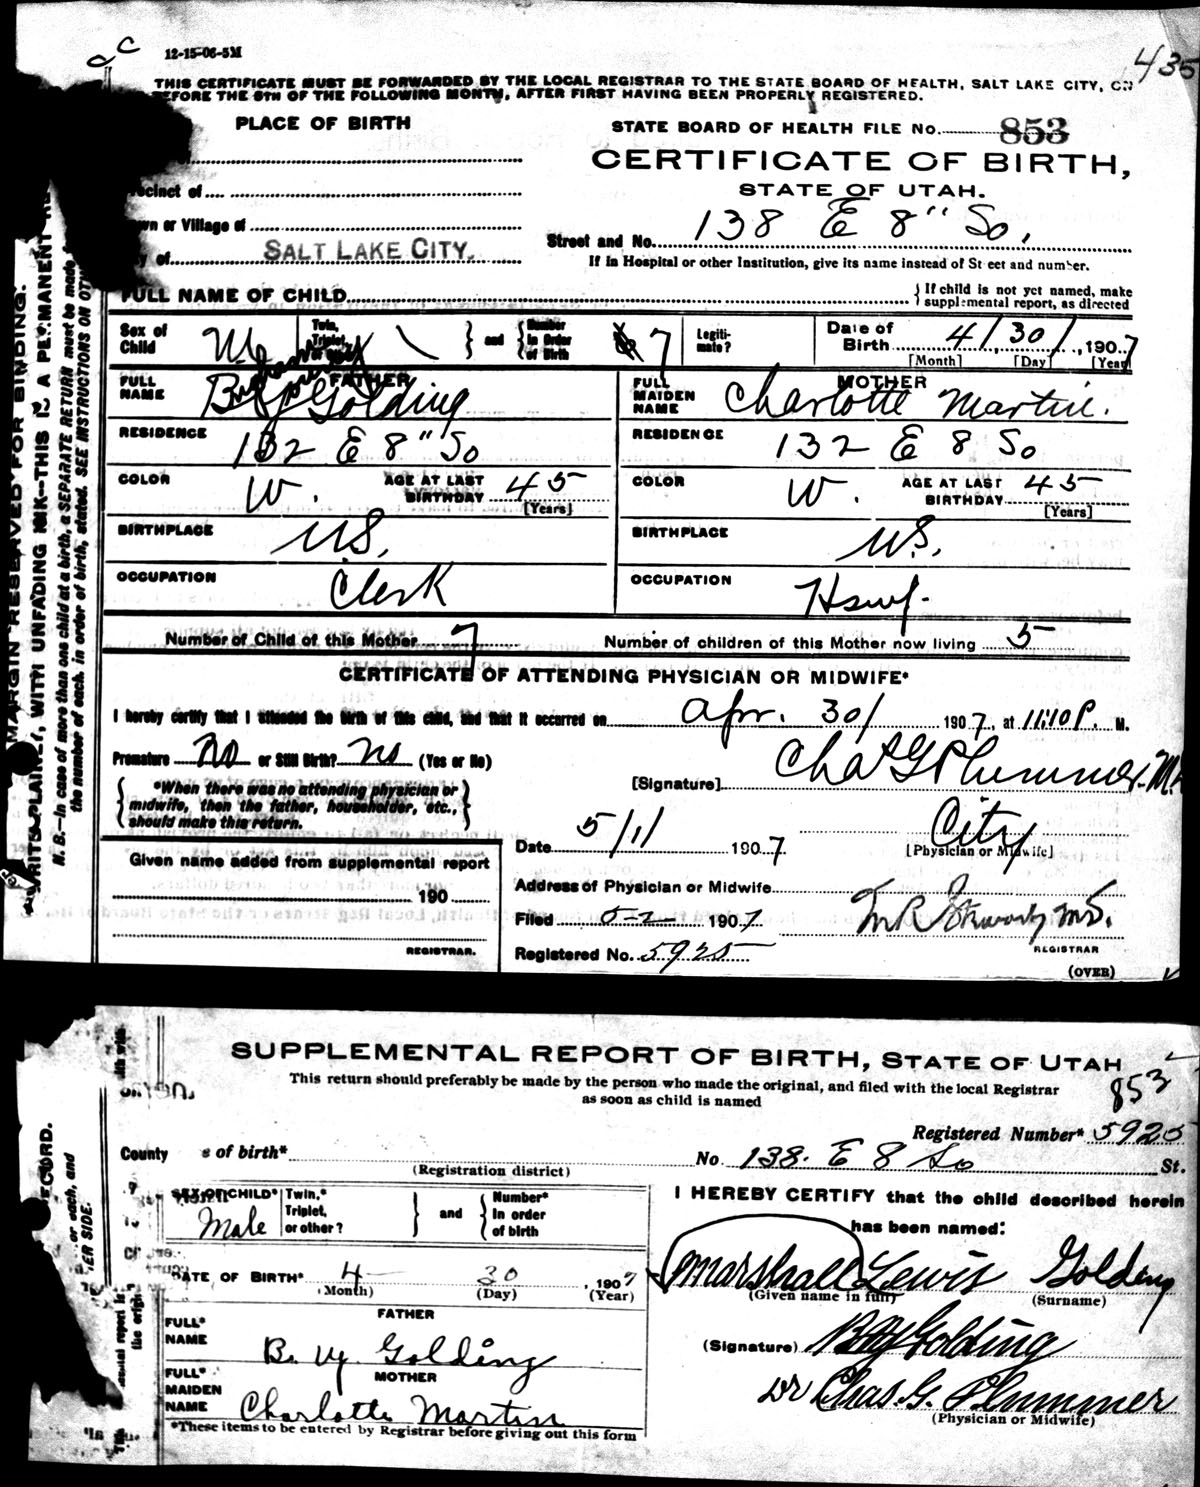 12-15-06-5M
435
THIS CERTIFICATE MUST BE FORWARDED BY THE LOCAL REGISTRAR TO THE STATE BOARD OF HEALTH, SALT LAKE CITY, ON
BEFORE THE 5TH OF THE FOLLOWING MONTH, AFTER FIRST HAVING BEEN PROPERLY REGISTERED.
PLACE OF BIRTH
STATE BOARD OF HEALTH FILE No. 853
CERTIFICATE OF BIRTH,
STATE OF UTAH.
cinct of
wn or Village of
of SALT LAKE CITY.
Street and No. 138 E 8" So.
If in Hospital or other Institution, give its name instead of Street and number.
FULL NAME OF CHILD
If child is not yet named, make supplemental report, as directed
Sex of Child M Twin, Triplet, or Other and Number in Order of Birth 7 Legitimate? Date of Birth 4/30/, 1907
[Month] [Day] [Year]
FATHER
FULL NAME Golding
RESIDENCE 132 E 8" So
COLOR W. AGE AT LAST BIRTHDAY 45 [Years]
BIRTHPLACE U.S.
OCCUPATION Clerk
MOTHER
FULL MAIDEN NAME Charlotte Martin.
RESIDENCE 132 E 8 So
COLOR W. AGE AT LAST BIRTHDAY 45 [Years]
BIRTHPLACE U.S.
OCCUPATION Hswf.
Number of Child of this Mother 7 Number of children of this Mother now living 5
CERTIFICATE OF ATTENDING PHYSICIAN OR MIDWIFE*
I hereby certify that I attended the birth of this child, and that it occurred on Apr. 30/ 1907, at 11:10 P. M.
Premature No or Still Birth? no (Yes or No)
*When there was no attending physician or
midwife, then the father, householder, etc.,
should make this return.
[Signature] Chas G Plummer M.
Date 5/1/ 1907 City
[Physician or Midwife]
Given name added from supplemental report
190
REGISTRAR.
Address of Physician or Midwife
Filed 5-2 1907
REGISTRAR
Registered No. 5925
(OVER)
MARGIN RESERVED FOR BINDING.
WRITE PLAINLY, WITH UNFADING INK—THIS IS A PERMANENT
N. B.—In case of more than one child at a birth, a SEPARATE RETURN must be made
the number of each, in order of birth, stated. SEE INSTRUCTIONS ON
SUPPLEMENTAL REPORT OF BIRTH, STATE OF UTAH
This return should preferably be made by the person who made the original, and filed with the local Registrar
as soon as child is named
853
Registered Number* 5925
County of birth* No. 138. E 8 So St.
(Registration district)
SEX OF CHILD* Male Twin,* Triplet, or other? and Number* in order of birth
DATE OF BIRTH* 4 30, 1907
(Month) (Day) (Year)
FATHER
FULL* NAME B. Y. Golding
MOTHER
FULL* MAIDEN NAME Charlotte Martin
*These items to be entered by Registrar before giving out this form
I HEREBY CERTIFY that the child described herein
has been named:
Marshall Lewis Golding
(Given name in full) (Surname)
(Signature) B Y Golding
Dr Chas. G. Plummer
(Physician or Midwife)